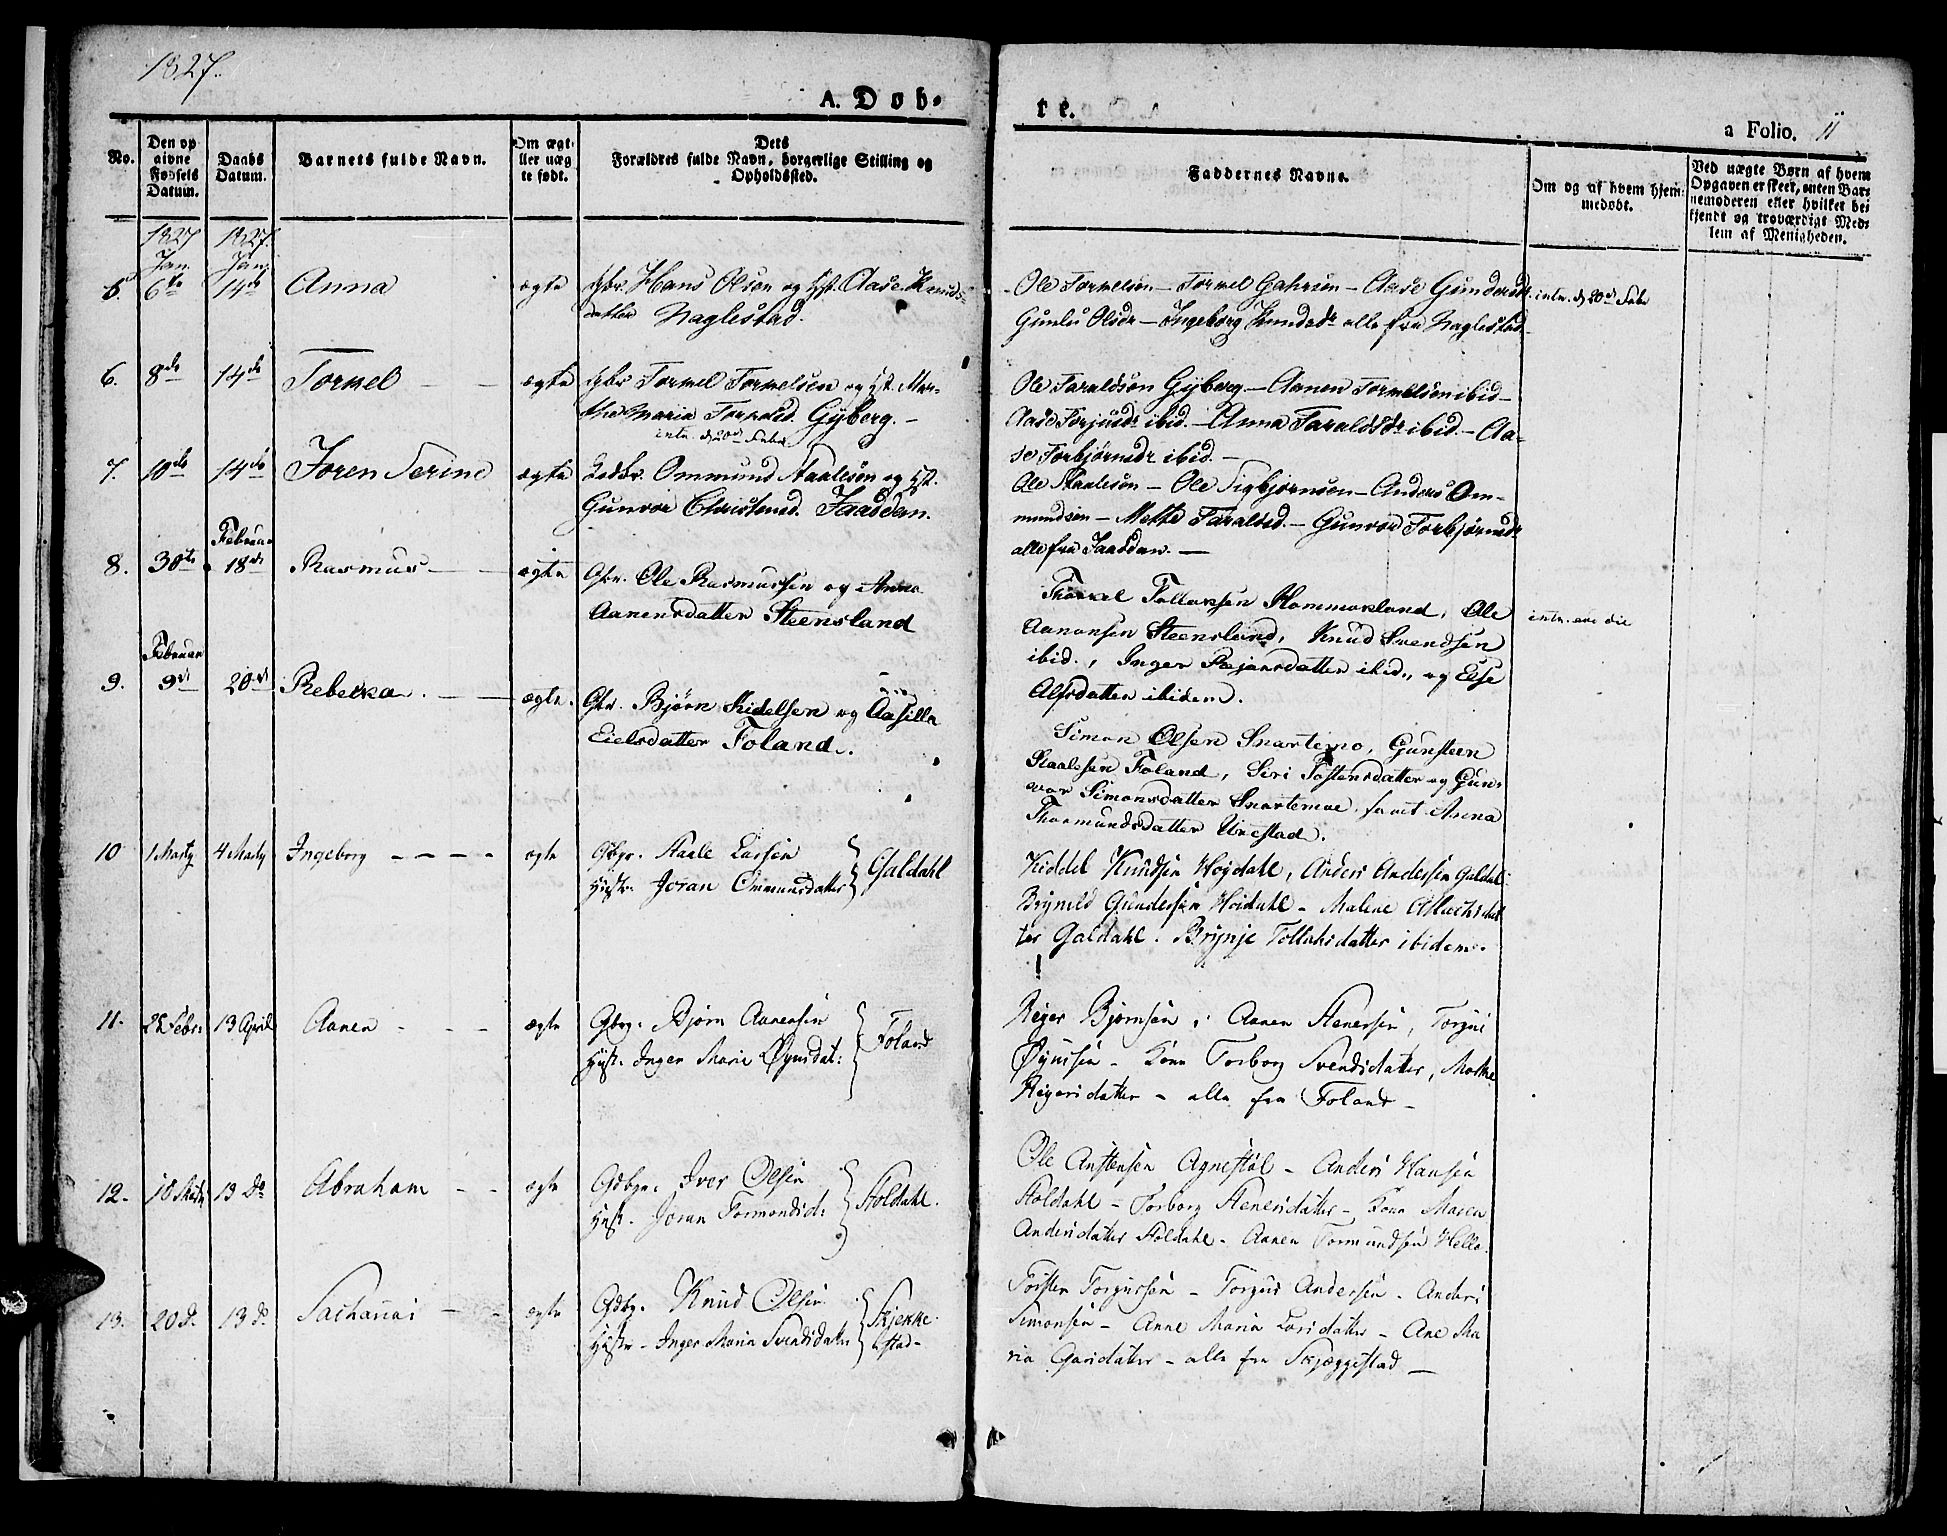 1827.
A. Døb-
te.
a Folio. 11
No.
Den op
givne
Fødsels
Datum.
Daabs
Datum.
Barnets fulde Navn.
Om ægt-
eller uæg
te født.
Dets
Forældres fulde Navn, borgerlige Stilling og
Opholdssted.
Faddernes Navne.
Om og af hvem hjem-
medøbt.
Ved uægte Børn af hvem
Opgaven er skeet, enten Bar-
nemoderen eller hvilket be-
kjendt og troværdigt Med-
lem af Menigheden.
1827 1827.
Jan. Jan.
5. 6te 14de Anna ægte Gbr. Hans Olsen og Hst. Aase Knuds-
datter Naglestad.
Ole Tormelsen - Tormel - Aase Gundersdr.
Gunlu Olsdr - Ingeborg Knudsdr alle fra Naglestad
intr. d. 20d Febr
6. 8de 14de Tormel - - ægte Gbr Tormel Tormelsen og Hst. Mar-
tha Maria Gyberg. -
intr. d. 20d Febr
Ole Taraldsen Gyberg - Aanen Tormelsen ibid -
Aase ibid. - Anna Taraldsdr ibid. - Aa-
se Torbjørnsdr ibid. -
7. 10de 14de Joren Serine ægte Ommund Staalesen og Hst.
Gunvor Christensd. Jaasdan.
Ole Staalesen - Ole Sigbjørnsen - Anders Om-
mundsen - Mette Taraldsd. - Gunvor Torbjørnsdr
alle fra Jaasdan. -
Februar
8. 30te 18de Rasmus - - ægte Gbr. Ole Rasmussen og Anna
Aanensdatter Steensland
Thorkel Tollaksen Hammersland, Ole
Aanonsen Steensland, Knud Svendsen
ibid., Inger Rejersdatter ibid., og Else
Alfsdatter ibidem.
intr. eod. die
Februar
9. 9de 20de Rebekka. - - ægte. Gbr. Bjørn Kidelsen og Aasille
Eielsdatter Foland.
Simon Olsen Snartemo, Gunsteen
Staalesen Foland, Siri Tostensdatter og Gun-
vor Simonsdatter Snartemoe, samt Anna
Thormundsdatter Urestad.
10 1 Marty 4 Marty Ingeborg - - - - ægte Gbgr. Staale Larsen
Hustr. Joran Ommunsdatter
Galdahl
Kiddel Knudsen Høydahl, Anders Andersen Galdal
Brynild Gundersen Høidahl - Malene Aslachsdat
ter Galdahl. Brynje Tollaksdatter ibidem.
11. Febr: 13 April Aanen - - - ægte Gbrg: Bjørn Aanensen
Hust. Inger Marie Øynsdat:
Foland
Reyer Bjørnsen, Aanen Stenersen, Torgius
Øynsen - Kone Torborg Svendsdatter, Marthe
Reyersdatter - alle fra Foland -
12. 18 Marts 13 Do Abraham - - ægte Gdbgr: Iver Olsen
Hust. Joran Tormondsd:
Stoldahl.
Ole Anstensen Agnestøl - Anders Hansen
Stoldahl - Torborg Stenersdatter - Kone Maren
Andersdatter Stoldahl - Aanen Tormundsen Helle.
13. 20 d. 13 do Sacharias - - ægte Gdbg. Knud Olsen
Hustr - Inger Maria Svendsdatter
Skjekke-
stad -
Tosten Torgiussen - Torgius Andersen - Anders
Simonsen - Anne Maria Larsdatter - Ane Ma
ria - alle fra Skjæggestad -